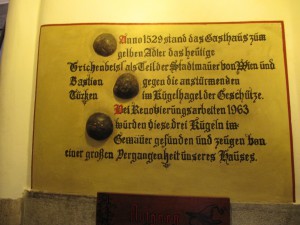 Anno 1529 stand das Gasthaus zum
gelben Adler das heutige
Griechenbeisl als Teil der Stadtmauer von Wien und
Bastion gegen die anstürmenden
Türken im Kugelhagel der Geschütze.
Bei Renovierungsarbeiten 1963
würden diese drei Kugeln im
Gemäuer gefunden und zeugen von
einer großen Vergangenheit unseres Hauses.